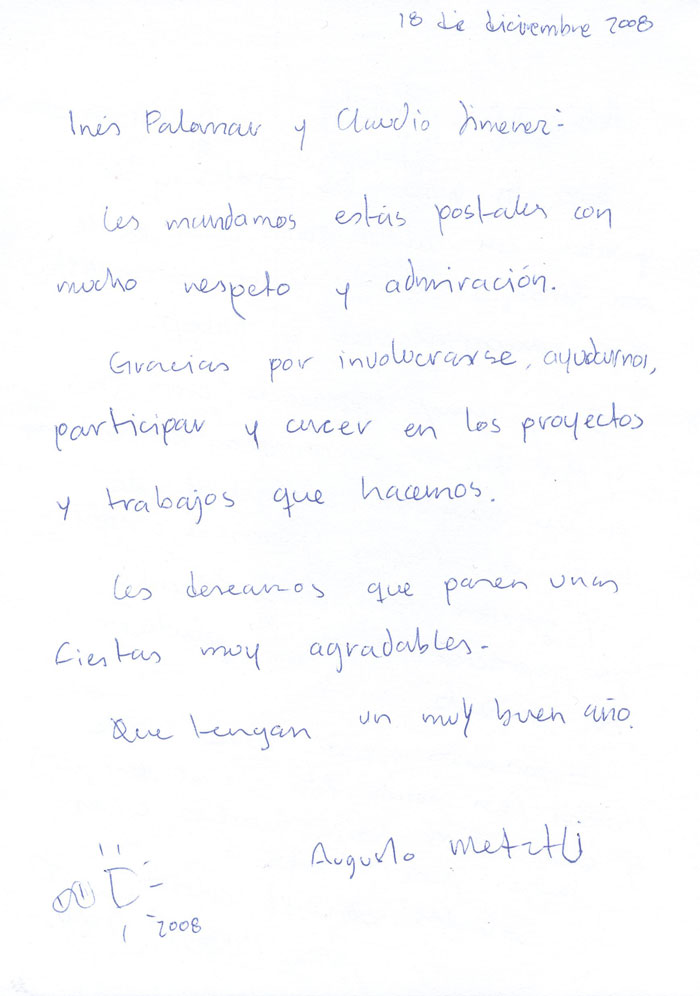 18 de diciembre 2008
Inés Palomar y Claudio Jimenez:
Les mandamos estás postales con
mucho respeto y admiración.
Gracias por involucrarse, ayudarnos,
participar y crecer en los proyectos
y trabajos que hacemos.
Les deseamos que pasen unas
fiestas muy agradables.
Que tengan un muy buen año.
Augusto Metztli
2008